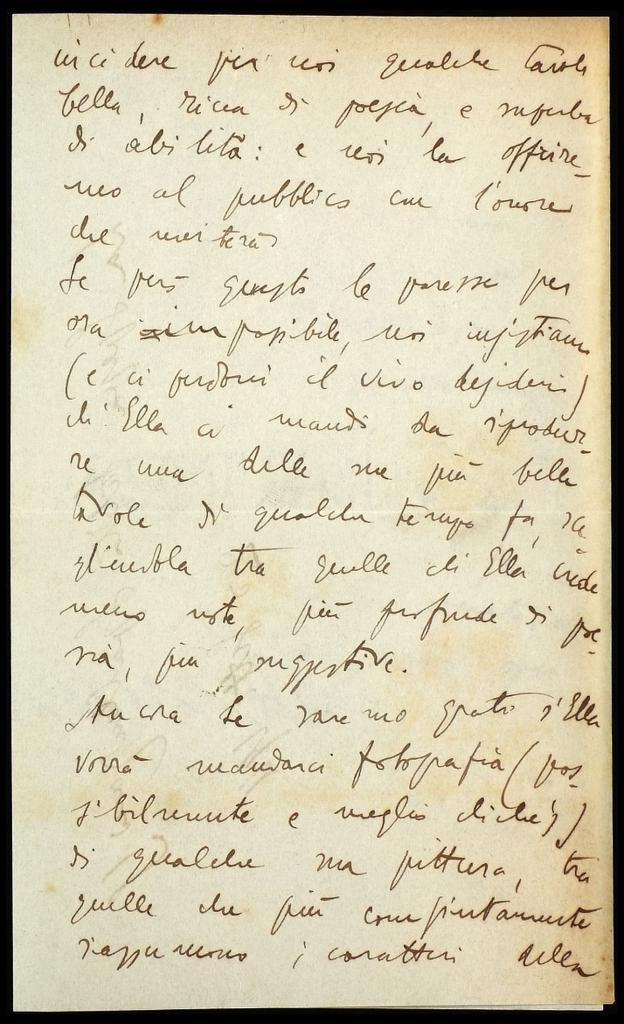 incidere per noi qualche tavola
bella, ricca di poesia, e superba
di abilità: e noi la offrire-
mo al pubblico con l'onore
che meriterà.
Se però questo le paresse per
ora impossibile, noi insistiamo
(e ci perdoni il vivo desiderio)
ch'Ella ci mandi da riprodur-
re una delle sue più belle
tavole di qualche tempo fa, sce-
gliendola tra quelle ch'Ella crede
meno note, più profonde di poe-
sia, più suggestive.
Ancora Le saremo grati s'Ella
vorrà mandarci fotografia (pos-
sibilmente e meglio clichés)
di qualche sua pittura, tra
quelle che più compiutamente
riassumono i caratteri della